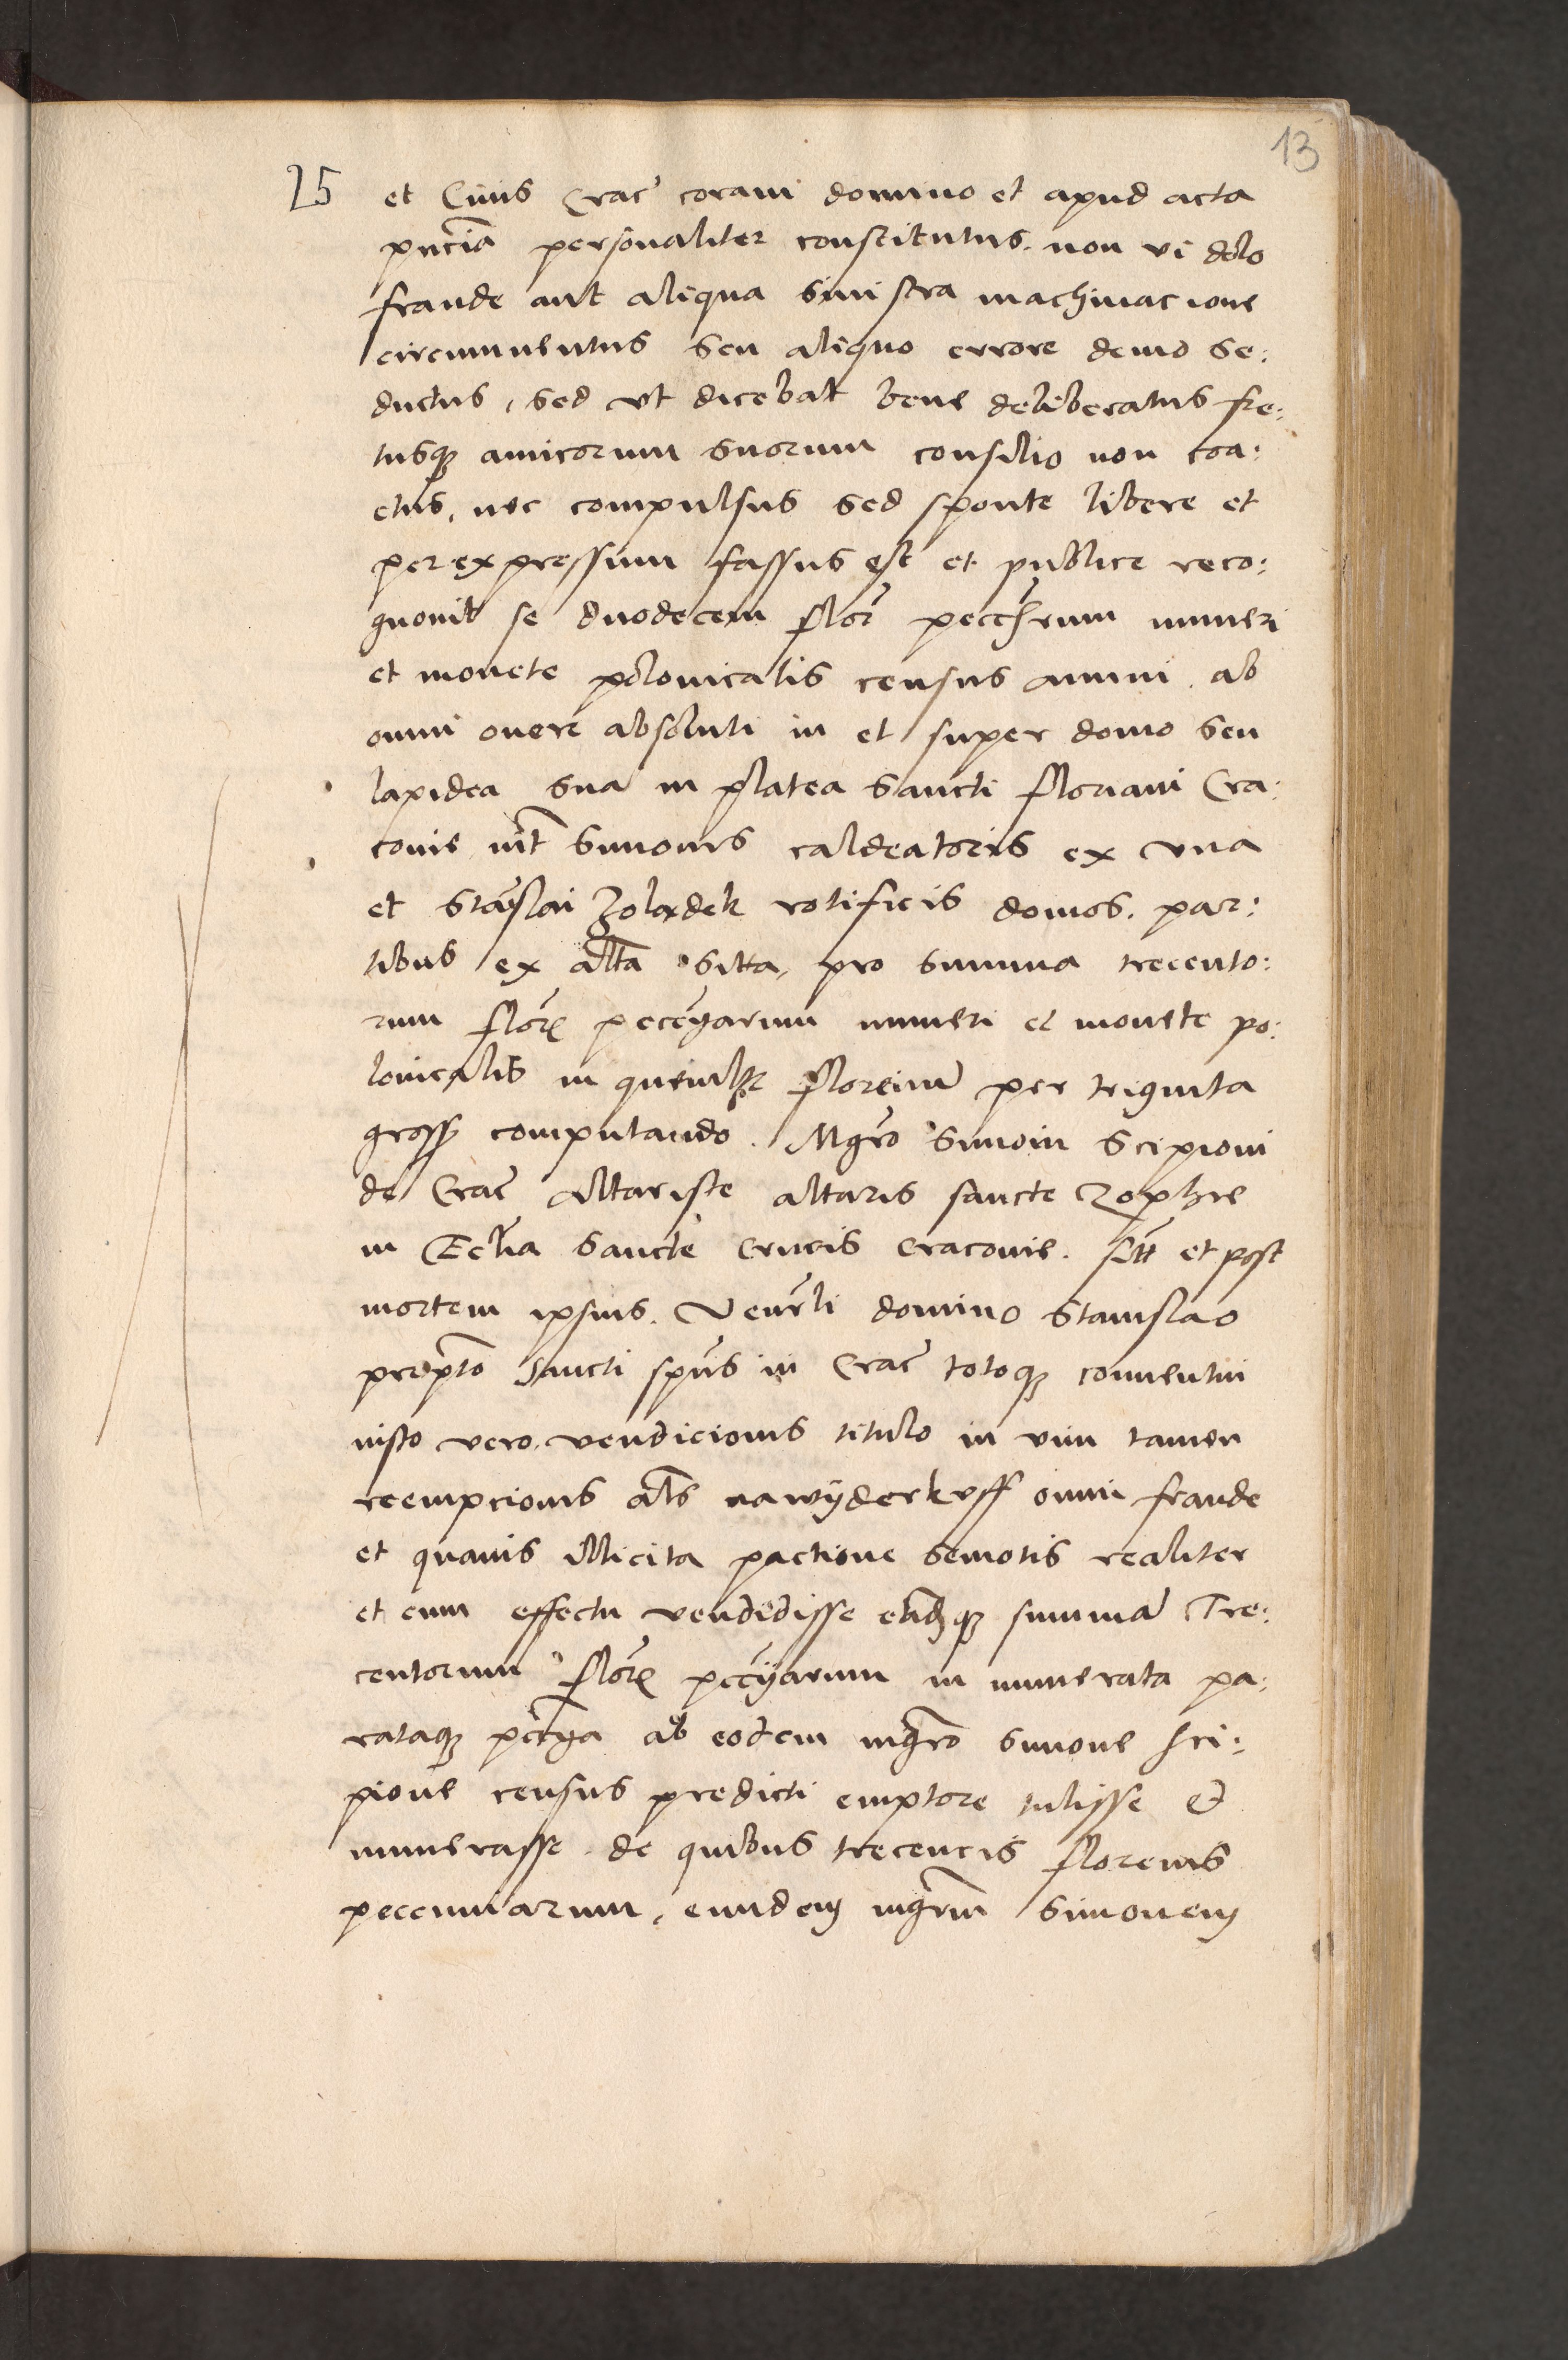 13
25 et Ciuis Crac̄ coram domino et apud acta
pn̄cia personaliter constitutus. non vi dolo
fraude aut aliqua sinistra machinacione
circumuentus seu aliquo errore deuio se:
ductus, sed vt dicebat bene deliberatus fre:
tusq̃ amicorum suorum consilio non coa:
ctus, nec compulsus sed sponte libere et
per expressum fassus est et publice reco:
gnouit se duodecem flor̄ numeri
et monete polonicalis census annui ab
omni onere absoluti in et super domo seu
lapidea sua in platea Sancti Floriani Cra:
couie int̄ Simonis caldeatoris ex vna
et Stan̄slai Zolądek rotificis domos. par:
tibus ex alt̄a sitta, pro summa trecento:
rum flor̄ pecc̄yarum numeri et monete po:
lonicalis in quemlꝫ florenū per triginta
gross̄ computando. Mgr̄o Simoni Scipioni
de Crac̄ Altariste altaris sancte Zophie
in Eccl̄ia Sancte Crucis Cracouie. et post
mortem ipsius. Vener̄li domino Stanislao
prep̄to Sancti sp̄us in Crac̄ totoq̃ conuentui
iusto vero vendicionis titulo in vim tamen
reempcionis al̄s nawyderkvff omni fraude
et quauis illicita pactione semotis realiter
et cum effectu vendidisse summā Tre:
centorum flor̄ pecc̄yarum in numerata pa:
rataq̃ pec̄yа ab eodem mgr̄o Simone Sci:
pione census predicti emptore tulisse et
numerasse. de quibus trecencis florenis
peccuniarum, eundem mgr̄um Simonem